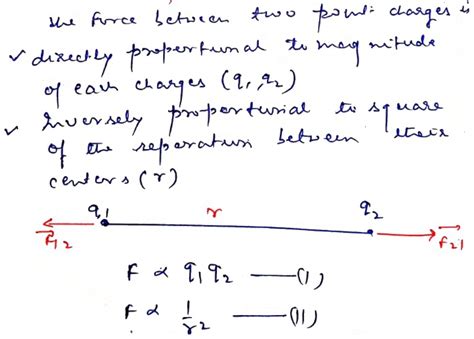 the force between two point charges is
✓ directly proportional to magnitude
of each charges (q₁, q₂)
✓ Inversely proportional to square
of the separation between their
centers (r)
q₁ r q₂
F₁₂ F₂₁
F ∝ q₁q₂ —(I)
F ∝ 1/r² —(II)